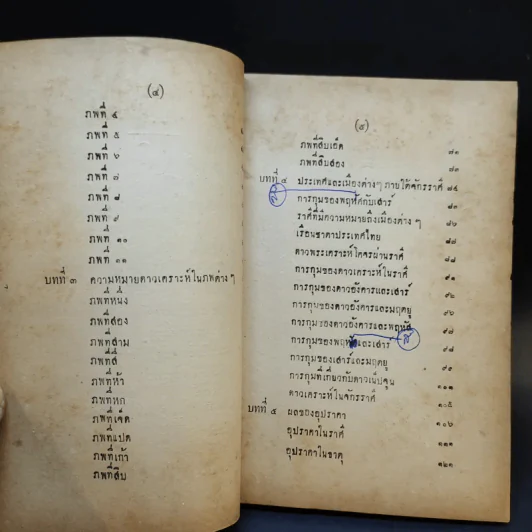 (๔)
ภพที่ ๔
ภพที่ ๕
ภพที่ ๖
ภพที่ ๗
ภพที่ ๘
ภพที่ ๙
ภพที่ ๑๐
ภพที่ ๑๑
บทที่ ๓ ความหมายดาวเคราะห์ในภพต่าง ๆ
ภพที่หนึ่ง
ภพที่สอง
ภพที่สาม
ภพที่สี่
ภพที่ห้า
ภพที่หก
ภพที่เจ็ด
ภพที่แปด
ภพที่เก้า
ภพที่สิบ
(๕)
ภพที่สิบเอ็ด ๗๑
ภพที่สิบสอง ๗๓
บทที่ ๔ ประเทศและเมืองต่างๆ ภายใต้จักรราศี
การกุมของพฤหัสกับเสาร์
ราศีที่มีความหมายถึงเมืองต่าง ๆ ๘๖
เรือนชาตาประเทศไทย
ดาวพระเคราะห์โคจรผ่านราศี
การกุมของดาวเคราะห์ในราศี ๙๑
การกุมของดาวอังคารและเสาร์ ๙๖
การกุมของดาวอังคารและมฤตยู ๙๖
การกุมของดาวอังคารและพฤหัส ๙๗
การกุมของพฤหัสและเสาร์ ๙๘
การกุมของเสาร์และมฤตยู ๙๙
การกุมที่เกี่ยวกับดาวเน็ปจูน
ดาวเคราะห์ในจักรราศี ๑๐๕
บทที่ ๕ ผลของอุปราคา ๑๐๖
อุปราคาในราศี
อุปราคาในธาตุ ๑๒๑